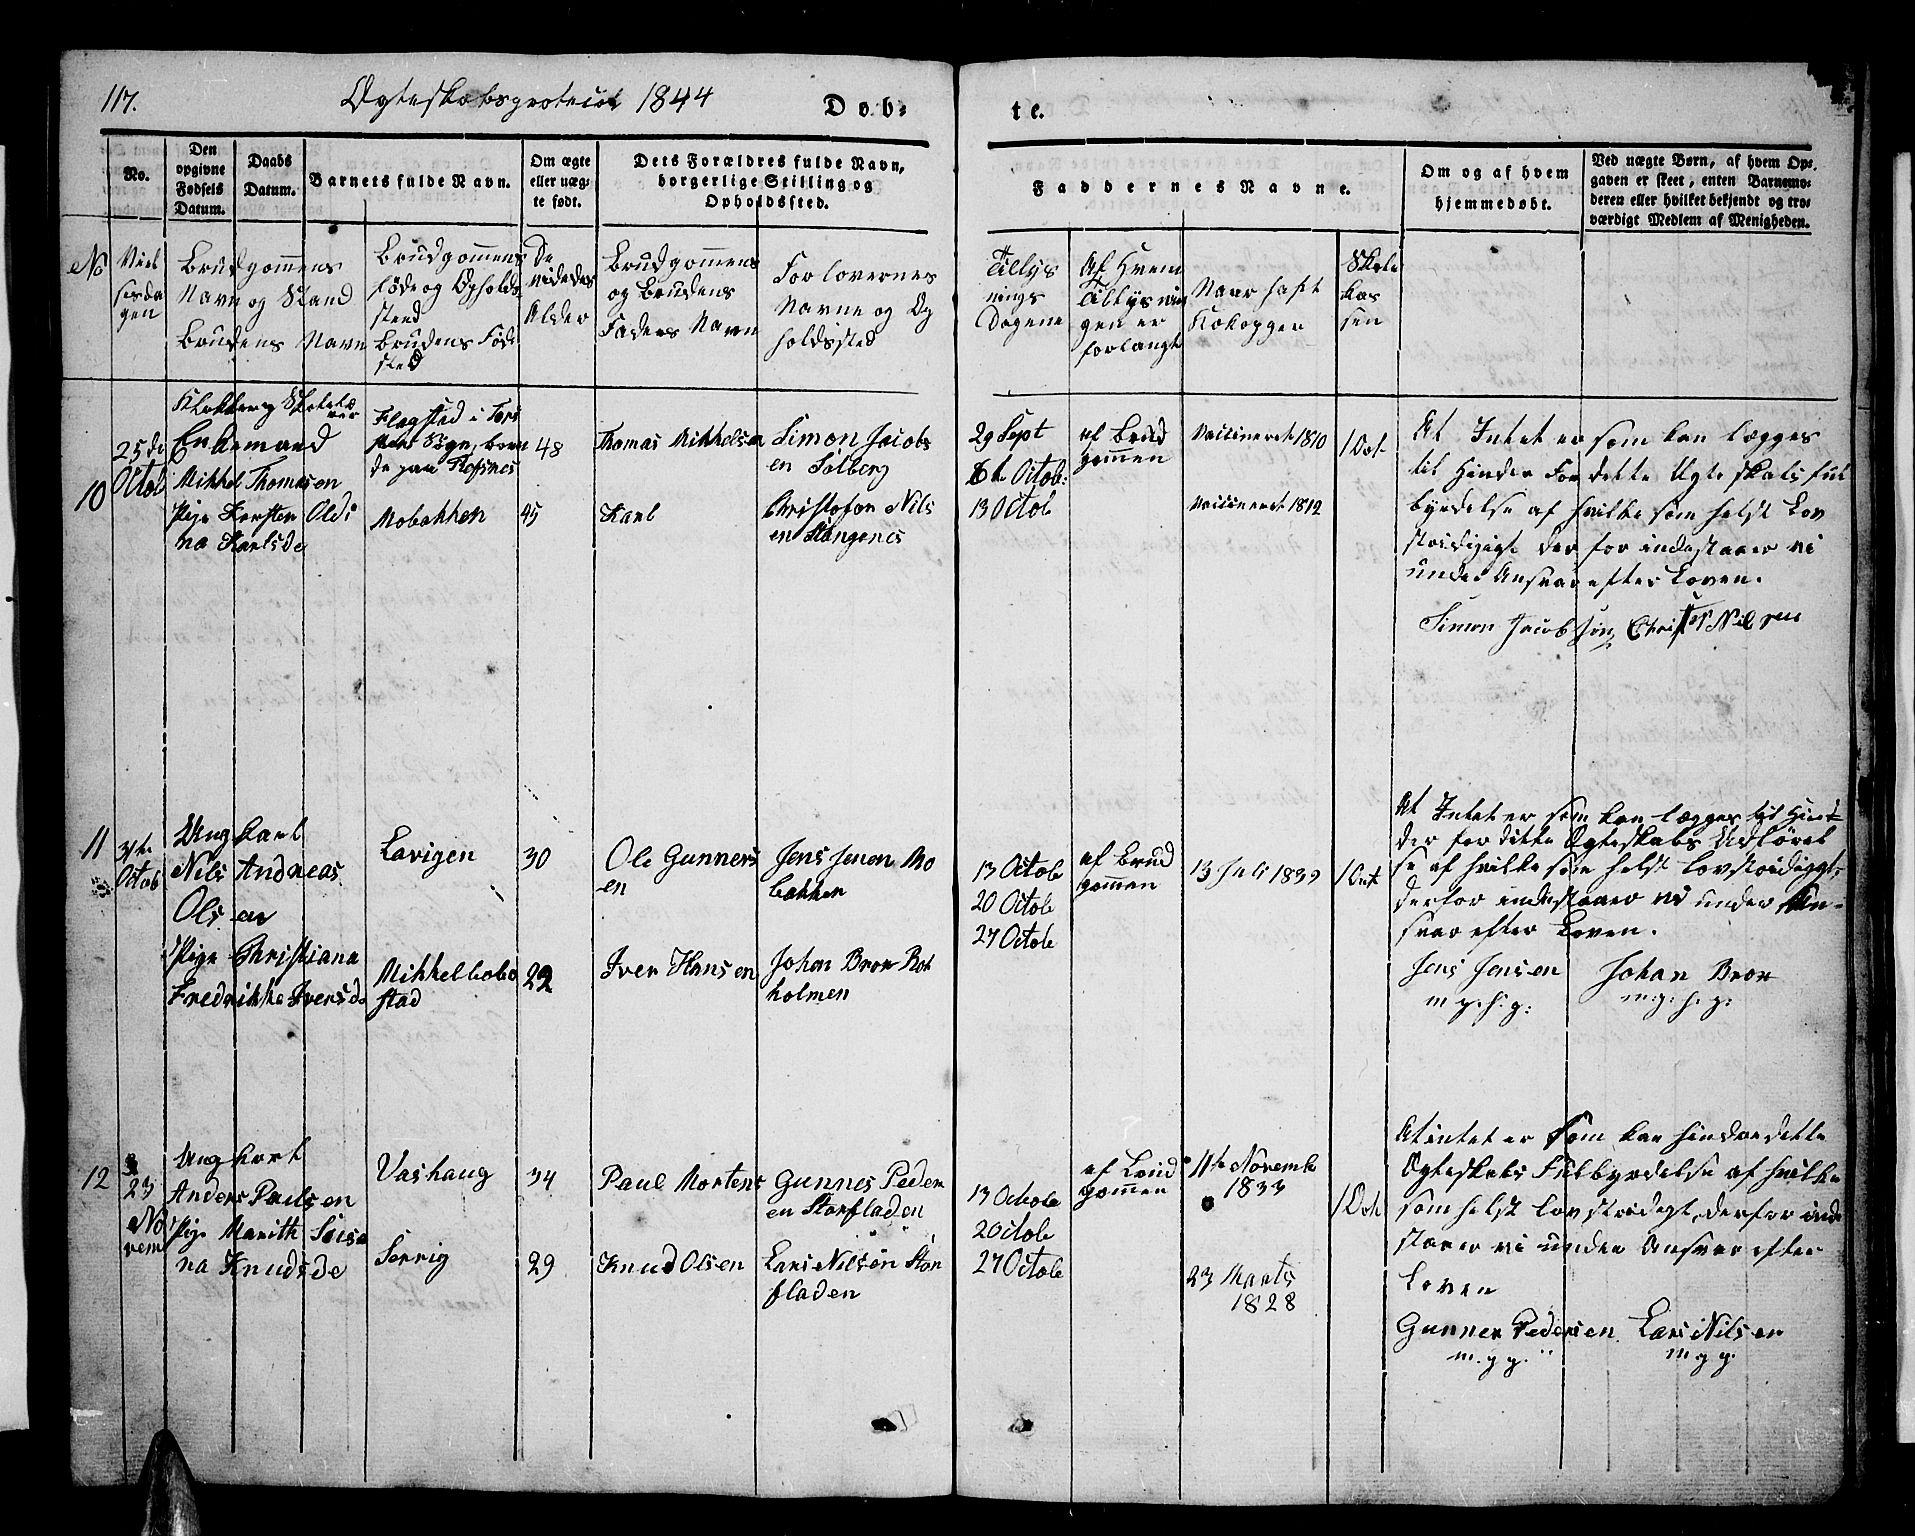 117.
Ægteskabsprotocol 1844
Døb-
te.
No.
Den
opgivne
Fødsels
Datum.
Daabs
Datum.
Barnets fulde Navn.
Om ægte
eller uæg-
te født.
Dets Forældres fulde Navn,
borgerlige Stilling og
Opholdssted.
Faddernes Navne.
Om og af hvem
hjemmedøbt.
Ved uægte Børn, af hvem Op-
gaven er skeet, enten Barnemo-
deren eller hvilket bekjendt og tro-
værdigt Medlem af Menigheden.
No
Viel
sesda
gen
Brudgommens
Navn og Stand
Brudens Navn
Brudgommens
føde og Opholds
sted
Brudens Føde
sted
De
viedes
Alder
Brudgommens
og Brudens
Faders Navn
Forlovernes
Navne og Op
holdssted
Tillys
nings
Dagene
Af hvem
Tillysnin
gen er
forlangt
Naar haft
Kokopper
Skole
kas
sen
10
25de
Octob
Klokker og Skolelæ
rer
Enkemand
Mikkel Thomasen
Pige Kersten Olds
na Karlsde
Flagsted i Tors
Sogn, boen
de paa
Mobakken
48
45
Thomas Mikkelsen
Karl
Simon Jacobs
en Solberg
Christofor Nils
en Stangenes
29 Sept
6te Octob:
13 Octob
af Brud
gommen
Vaccineret 1810
Vaccineret 1812
1 Ort
At Intet er som kan lægges
til Hinder for dette Ægteskabs ful
byrdelse af hvilke som helst Lov
stridigigt der for indestaaer vi
under Ansvar efter Loven.
Simon Jacobsøn Christof Nilsen
11
31te
Octob
Ung karl
Nils Andreas
Olsen
Pige Christiana
Fredrikke Iversda
Lavigen
Mikkelbobo
stad
30
22
Ole Gunners
en
Iver Hansen
Jens Jensen Mo
bakken
Johan Bror Rot
holmen
13 Octob
20 Octob
27 Octob
af Brud
gommen
13 Juli 1839
1 Ort
At Intet er som kan lægges til Hind-
der for dette Ægteskabs Udførel
se af hvilke som helst lovstridiggt,
derfor indestaaer vi under An-
svar efter Loven.
Jens Jensen
m.p.h.p:
Johan Bror
m.p.h.p:
12
23
No
vem
Ung karl
Anders Paulsen
Pige Marith Seise
na Knudsde
Vashaug
Serrig
34
29
Paul Mortens
Knud Olsen
Gunnes Peder
en Storfladen
Lars Nilsen Stor
fladen
13 Octob
20 Octob
27 Octob
af Brud
gommen
11te Novemb
1833
23 Marts
1828
1 Ort
At intet er som kan hindre dette
Ægteskabs Fulbyrdelse af hvilke
som helst lovstridigt, derfor inde
staaer vi under Ansvar efter
Loven
Gunner Pedersen
m.p.p.
Lars Nilsen
m.p.p.